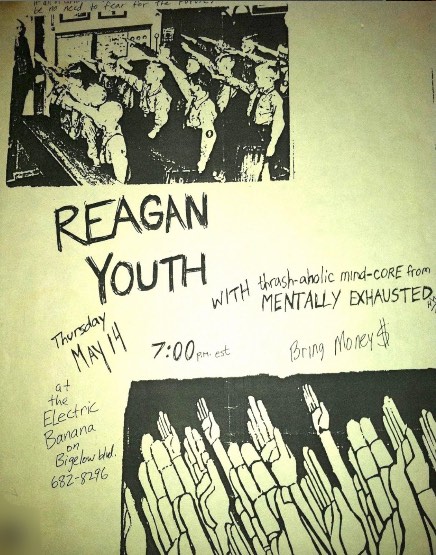 be no need to fear for the future.
REAGAN
YOUTH
WITH thrash-aholic mind-CORE from
MENTALLY EXHAUSTED
Thursday
MAY 14
7:00 p.m. est
Bring Money$
at
the
Electric
Banana
on
Bigelow blvd.
682-8296